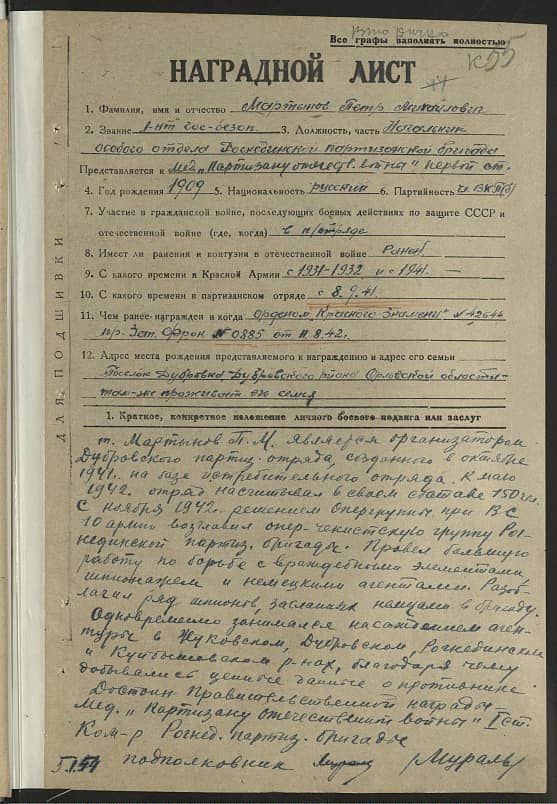 Все графы заполнять полностью
к 55
НАГРАДНОЙ ЛИСТ
1. Фамилия, имя и отчество Мартынов Петр Михайлович
2. Звание л-нт гос-безоп. 3. Должность, часть Начальник
особого отдела Рогнединской партизанской бригады
Представляется к Мед. „Партизану отечеств. войны" первой ст.
4. Год рождения 1909 5. Национальность русский 6. Партийность ч. ВКП(б)
7. Участие в гражданской войне, последующих боевых действиях по защите СССР и
отечественной войне (где, когда) в п/отряде
8. Имеет ли ранения и контузии в отечественной войне Ранен.
9. С какого времени в Красной Армии с 1931-1932 и с 1941. —
10. С какого времени в партизанском отряде с 8.9.41.
11. Чем ранее награжден и когда Орденом „Красного Знамени" № 42646
пр. Зап. Фрон № 0885 от 11.8.42.
12. Адрес места рождения представляемого к награждению и адрес его семьи
Поселок Дубровка Дубровского района Орловской области-
там-же проживает его семья
1. Краткое, конкретное изложение личного боевого подвига или заслуг
т. Мартынов П. М. является организатором
Дубровского партиз. отряда, созданного в октябре
1941. на базе истребительного отряда. К маю
1942. отряд насчитывал в своем составе 150 чел.
С ноября 1942. решением Опергруппы при ВС
10 армии возглавил опер-чекистскую группу Рог-
нединской партиз. бригады. Провел большую
работу по борьбе с враждебными элементами
шпионажем и немецкими агентами. Разоб-
лачил ряд шпионов, засланных немцами в бригаду.
Одновременно занимался насаждением аген-
туры в Жуковском, Дубровском, Рогнединским
и Куйбышевском р-нах, благодаря чему
добывались ценные данные о противнике
Достоин Правительственной награды
Мед. „Партизану отечественной войны" I ст.
Ком-р Рогнед. партиз. бригады
подполковник (Мураль)
ДЛЯ ПОДШИВКИ